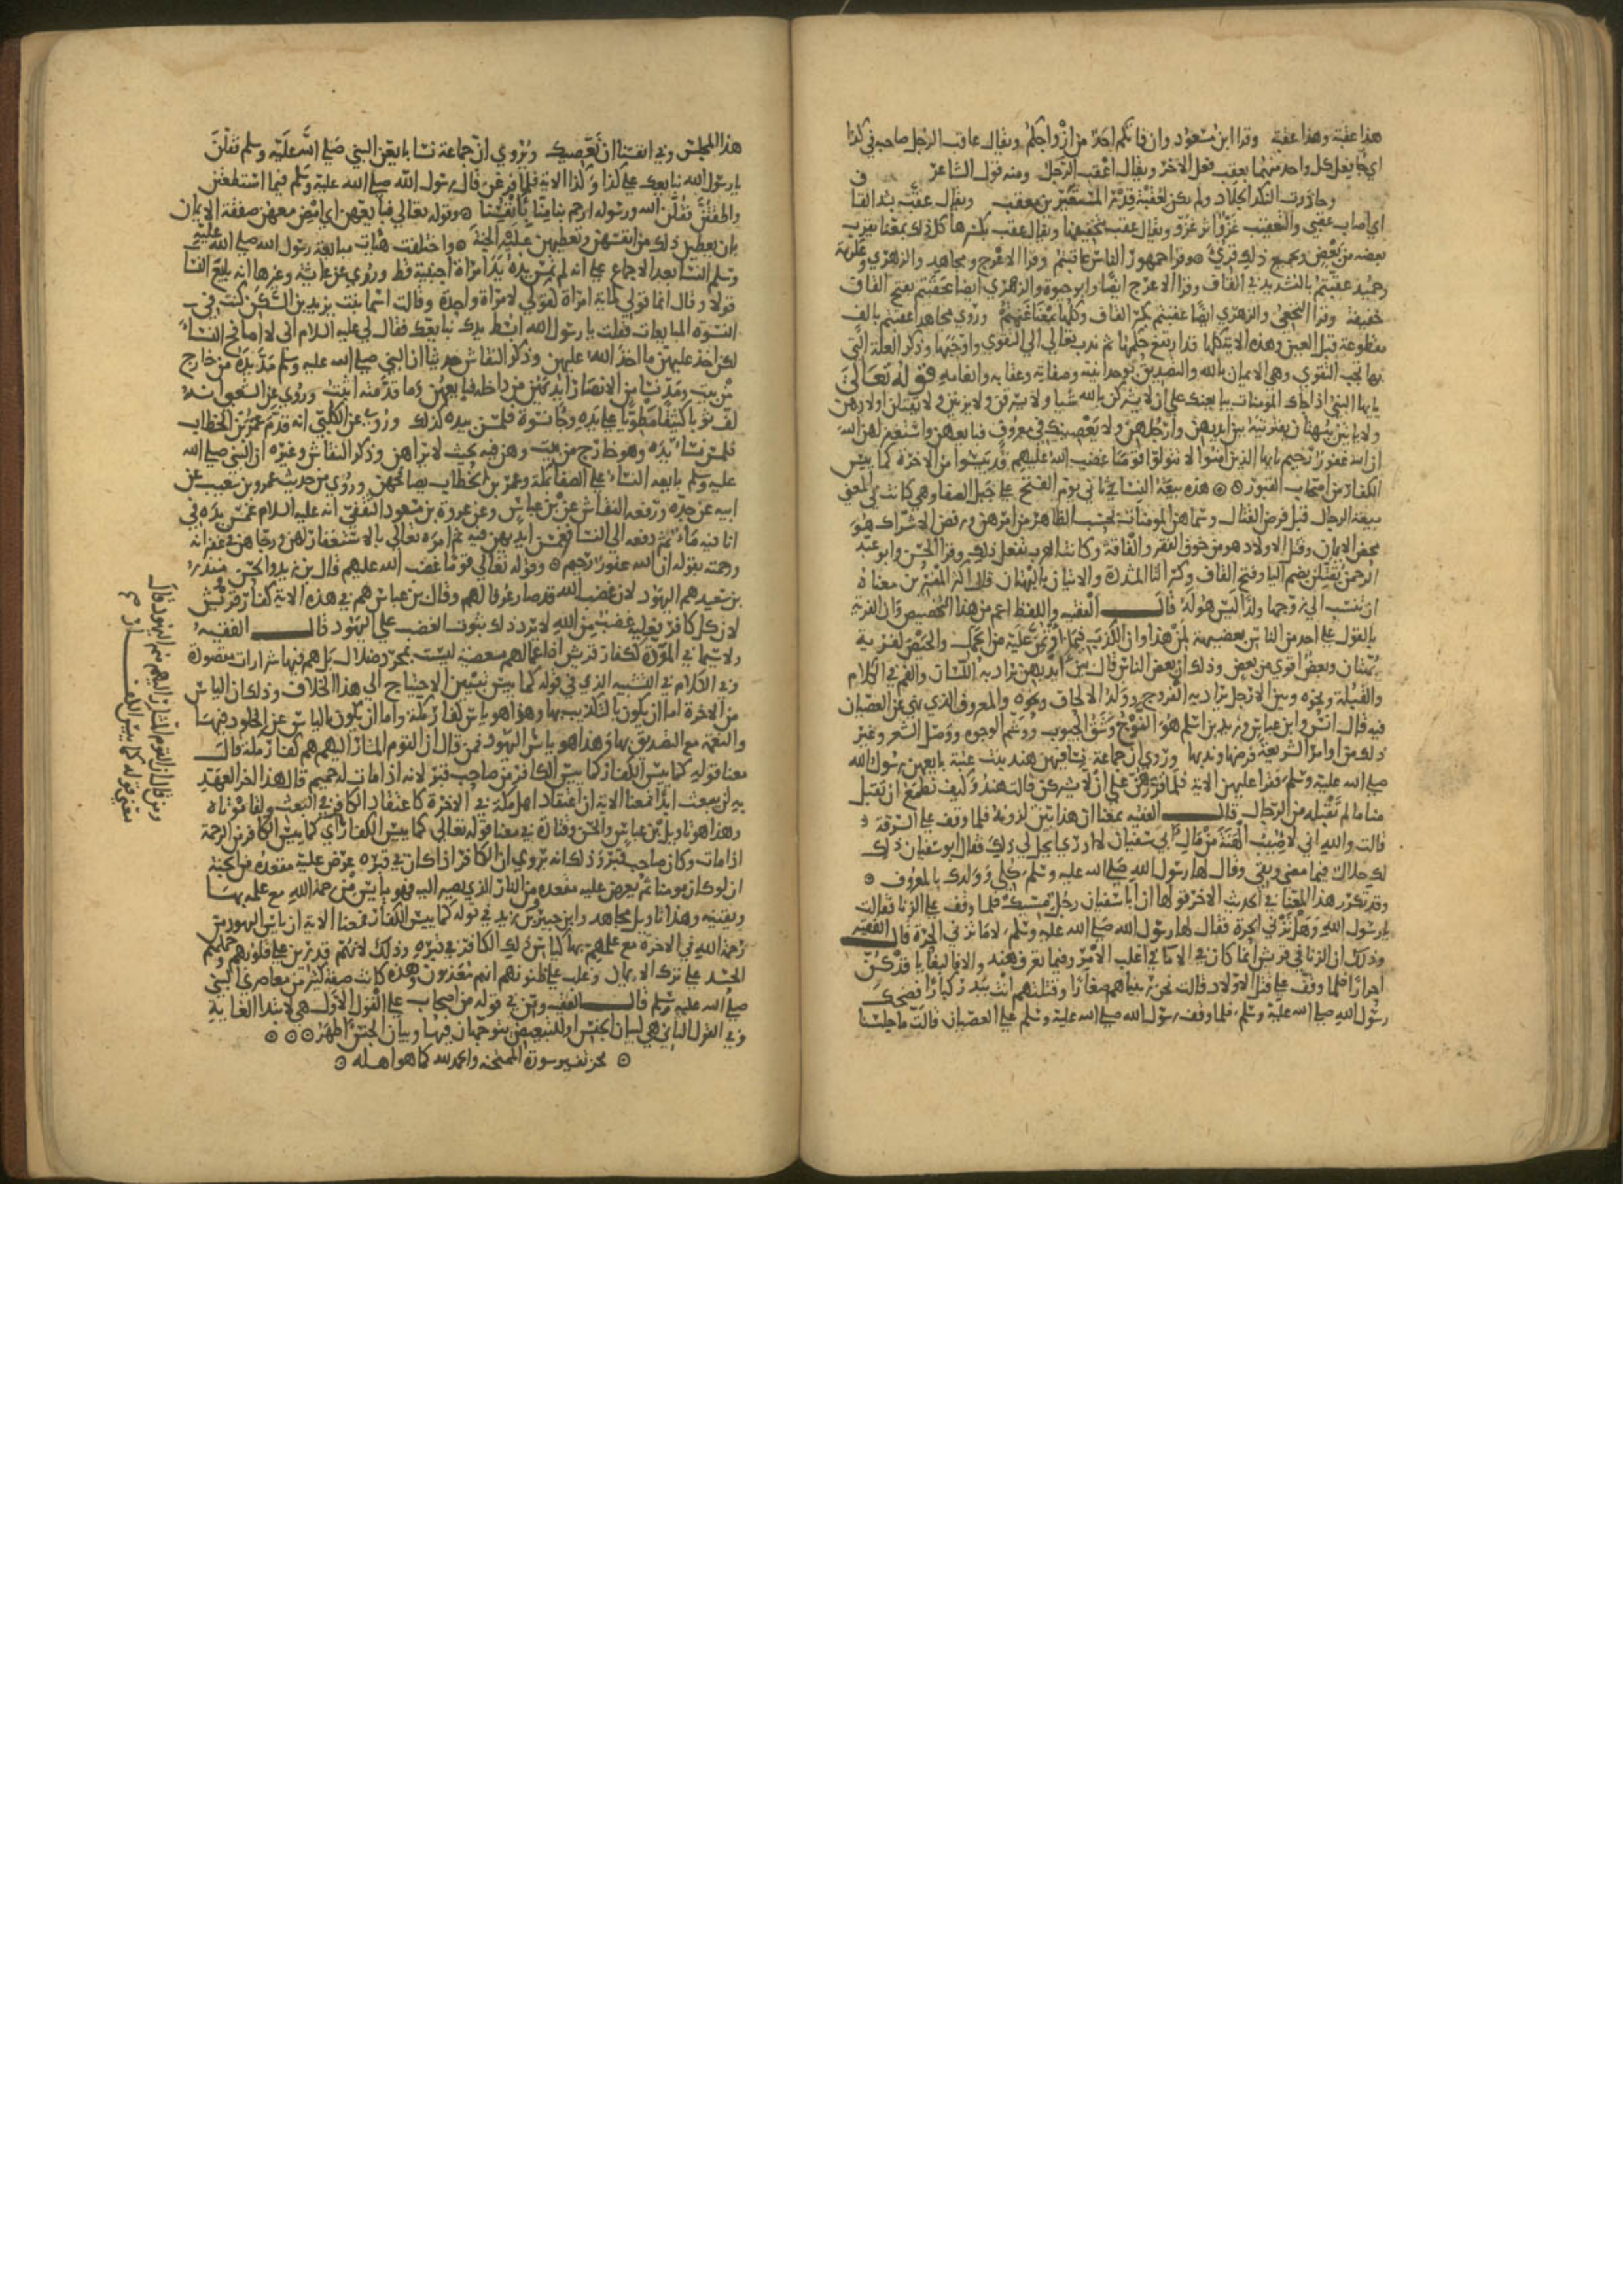 هذا عقبة وهذا عقبة وقرا ابن مسعود وان فاتكم احد من ازواجكم ويقال عاقب الرجل صاحبه في كذا
اي جا بفعل كل واحد منهما بعقب فعل الاخر ويقال اعقب الرجل ومنه قول الشاعر
وحاردت النكد الجلاد ولم تكن لعقبة قدر المستعيرين معقب ويقال عقب
اي اصاب عقبي والتعقيب غزو اثر غزو ويقال عقب بتخفيفها ويقال عقب بكسرها كل ذلك بمعنا يقرب
بعضه من بعض وبجميع ذلك قري وقرا جمهور الناس عاقبتم وقرا الاعرج ومجاهد والزهري وعكرمة
وحميد عقبتم بالتشديد في القاف وقرا الاعرج ايضا وابو حيوة والزهري ايضا عقبتم بفتح القاف
خفيفة وقرا النخعي والزهري ايضا عقبتم بكسر القاف وكلها بمعنا غنمتم وروي مجاهد اعقبتم بالف
مقطوعة قبل العين وهذه الاية كلها قد ارتفع حكمها ثم ندب تعالي الي التقوي واوجبها وذكر العلة التي
بها تجب التقوي وهي الايمان بالله والتصديق بوحدانيته وصفاته وعقابه وانعامه قوله تعالى
يايها النبي اذا جاك المومنات يبايعنك علي ان لا يشركن بالله شيا ولا يسرقن ولا يزنين ولا يقتلن اولادهن
ولا ياتين ببهتان يفترينه بين ايديهن وارجلهن ولا يعصينك في معروف فبايعهن واستغفر لهن الله
ان الله غفور رحيم يايها الذين امنوا لا تتولوا قوما غضب الله عليهم قد يئسوا من الاخرة كما يئس
الكفار من اصحاب القبور هذه بيعة النسا في ثاني يوم الفتح علي جبل الصفا وهي كانت في المعني
بيعة الرجال قبل فرض القتال وسماهن المومنات بحسب الظاهر من امرهن ورفض الاشراك هو
محض الايمان وقتل الاولاد هو من خوف الفقر والفاقة وكانت العرب تفعل ذلك وقرا الحسن وابو عبد
الرحمن يقتلن بضم اليا وفتح القاف وكسر التا المشددة والاتيان بالبهتان قال اكثر المفسرين معناه
ان تنسب الي زوجها ولدا ليس هو له قال الفقيه واللفظ اعم من هذا التخصيص فان الفرية
بالقول علي احد من الناس بعضيهة لمن هذا وان الكذب فيما اؤتمن عليه من الحمل والحيض لفرية
بهتان وبعض اقوي من بعض وذلك ان بعض الناس قال بين ايديهن يراد به اللسان والفم في الكلام
والقبلة ونحوه وبين الارجل يراد به الفروج وولد الالحاق ونحوه والمعروف الذي نهي عن العصيان
فيه قال انس وابن عباس وزيد بن اسلم هو النوح وشق الجيوب ووشم الوجوه ووصل الشعر وغير
ذلك من اوامر الشريعة فرضها وندبها وروي ان جماعة نسا فيهن هند بنت عتبة بايعهن رسول الله
صلي الله عليه وسلم فقرا عليهن الاية فلما قررهن علي ان لا يشركن قالت هند وكيف نطمع ان تقبل
منا ما لم تقبله من الرجال قال الفقيه بمعنا ان هذا بين لزومه فلما وقف علي السرقة
قالت والله اني لاصيب الهنة من مال ابي سفيان لا ادري ايحل لي ذلك فقال ابو سفيان ذلك
لك حلال فيما مضي وبقي وقال لها رسول الله صلي الله عليه وسلم كلي وولدك بالمعروف
وقد تكرر هذا المعنا في الحديث الاخر قولها ان ابا سفيان رجل مسيك فلما وقف علي الزنا فقالت
يا رسول الله وهل تزني الحرة فقال لها رسول الله صلي الله عليه وسلم لا ما تزني الحرة قال الفقيه
وذلك ان الزنا في قريش انما كان في الاما في اغلب الامر وفيما تعرف هند والا فالبغايا قد كن
احرارا فلما وقف علي قتل الاولاد قالت نحن ربيناهم صغارا وقتلتهم انت ببدر كبارا فضحك
رسول الله صلي الله عليه وسلم فلما وقف رسول الله صلي الله عليه وسلم علي العصيان قالت ما جلسنا
هذا المجلس وفي انفسنا ان نعصيك ويروي ان جماعة نسا بايعن النبي صلي الله عليه وسلم فقلن
يا رسول الله نبايعك علي كذا وكذا الاية فلما فرغن قال رسول الله صلي الله عليه وسلم فيما استطعتن
واطقتن فقلن الله ورسوله ارحم بنا منا بانفسنا وقوله تعالي فبايعهن اي امض معهن صفقة الايمان
بان يعطين ذلك من انفسهن وتعطيهن عليه الجنة واختلفت هيات مبايعة رسول الله صلي الله عليه
وسلم النسا بعد الاجماع علي انه لم تمس يده يد امراة اجنبية قط وروي عن عائشة وغيرها انه بايع النسا
قولا وقال انما قولي لماية امراة كقولي لامراة واحدة وقالت اسما بنت يزيد بن السكن كنت في
النسوة المبايعات فقلت يا رسول الله ابسط يدك نبايعك فقال لي عليه السلام اني لا اصافح النساء
لكن اخذ عليهن ما اخذ الله عليهن وذكر النقاش حديثا ان النبي صلي الله عليه وسلم مد يده من خارج
من بيت ومد نسا من الانصار ايديهن من داخله فبايعهن وما قدمته اثبت وروي عن الشعبي انه
لف ثوبا كثيفا مطويا علي يده وجا نسوة فلمسن بيده كذلك وروي عن الكلبي انه قدم عمر بن الخطاب
فلمس نساء يده وهو خارج من بيت وهن فيه بحيث لا يراهن وذكر النقاش وغيره ان النبي صلي الله
عليه وسلم بايعه النساء علي الصفا بمكة وعمر بن الخطاب يصافحهن وروي من حديث عمرو بن شعيب عن
ابيه عن جده ورفعه النقاش عن ابن عباس وعن عروة بن مسعود الثقفي انه عليه السلام غمس يده في
انا فيه ماء ثم دفعه الي النسا فغمسن ايديهن فيه ثم امره تعالي بالاستغفار لهن ورجاهن في غفرانه
ورحمته بقوله ان الله غفور رحيم وقوله تعالي قوما غضب الله عليهم قال بن زيد والحسن منذر
بن سعيد هم اليهود لان غضب الله قد صار عرفا لهم وقال بن عباس هم في هذه الاية كفار قريش
لان كل كافر فعليه غضب من الله لا يرد ذلك ثبوت الغضب علي اليهود قال الفقيه
ولا سيما في المودة لكفار قريش افاعالهم معصية ليست بمجرد ضلال بل هم فيها شرارات مقصودة
وفي الكلام في التشبيه الذي في قوله كما يئس يتبين الاحتياج الي هذا الخلاف وذلك ان الياس
من الاخرة اما ان يكون بالتكذيب بها وهذا هو ياس كفار مكة واما ان يكون بالياس عن الحلول فيها
والنعمة مع التصديق بها وهذا هو ياس اليهود فمن قال ان القوم المشار اليهم هم كفار مكة قال
معنا قوله كما يئس الكفار كما يئس الكافر من صاحب قبر لانه اذا مات له حميم قال هذا اخر العهد
به لن يبعث ابدا فمعنا الاية ان اعتقاد اهل مكة في الاخرة كاعتقاد الكافر في البعث ولقا موتاه
وهذا هو تاويل بن عباس والحسن وقتادة في معنا قوله تعالي كما يئس الكفار اي كما يئس الكافر من الرحمة
اذا مات وكان صاحب قبر وذلك انه يروي ان الكافر اذا كان في قبره عرض عليه مقعده من الجنة
ان لو كان مومنا ثم يعرض عليه مقعده من النار الذي يصير اليه فهو يايس من رحمة الله مع علمه بها
ويقينه وهذا تاويل مجاهد وابن جبير وبن زيد في قوله كما يئس الكفار فمعنا الاية ان ياس اليهود من
رحمة الله في الاخرة مع علمهم بها كياس ذلك الكافر في قبره وذلك لانهم قد رين علي قلوبهم وحملهم
الحسد علي ترك الايمان وغلب علي ظنونهم انهم معذبون وهذه كانت صفة كثير من معاصري النبي
صلي الله عليه وسلم قال الفقيه ومن في قوله من اصحاب علي القول الاول هي لابتدا الغاية
وفي القول الثاني هي لبيان الجنس او للتبعيض يتوجهان فيها وبيان الجنس اظهر
نجز تفسير سورة الممتحنة والحمد لله كما هو اهله
ومن قال ان القوم المشار اليهم هم اليهود قال
معنى قوله كما يئس الكفار